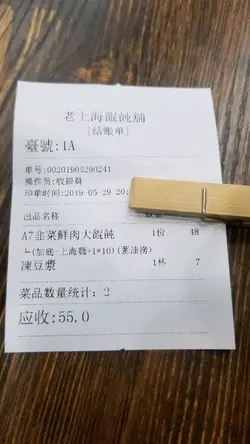 老上海餛飩舖
[结账单]
臺號:1A
单号:00201905290241
操作员:收銀員
印单时间:2019-05-29 20:
出品名称
A7韭菜鮮肉大餛飩 1份 48
(加底-上海麵+1*10)(蔥油撈)
凍豆漿 1杯 7
菜品数量统计：2
应收:55.0